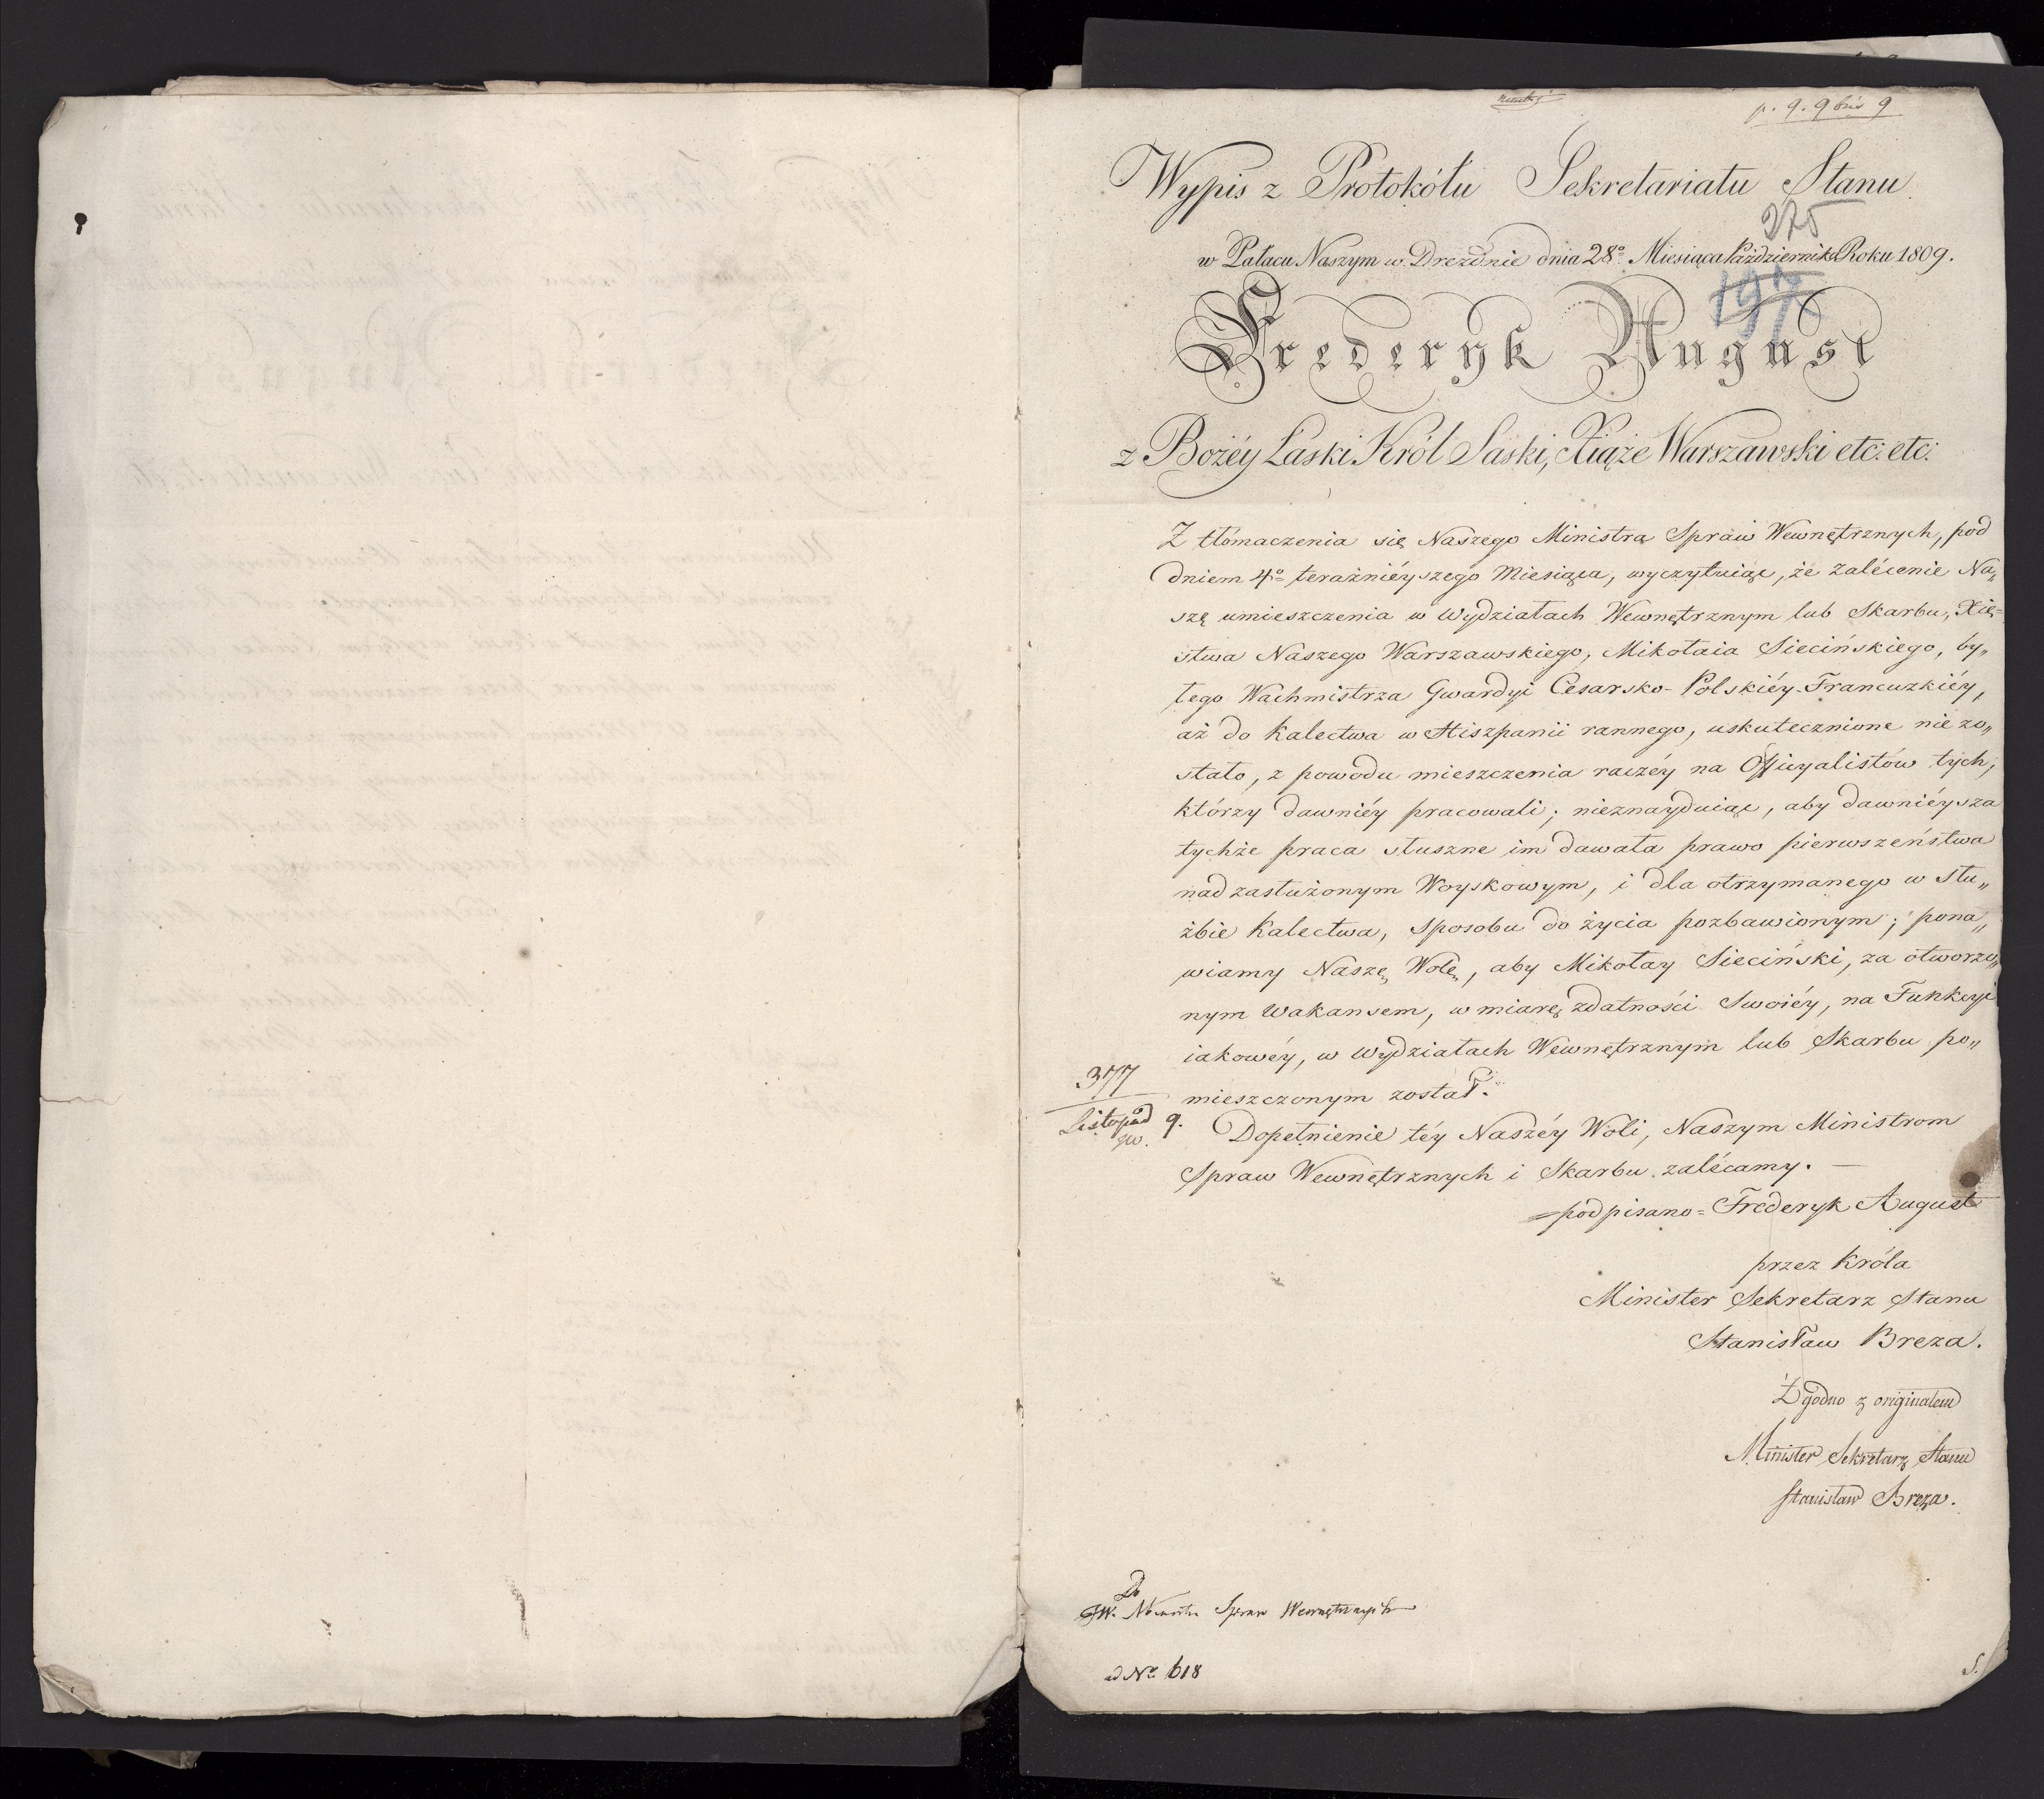 p. 9. 9 bis 9
Wypis z Protokółu Sekretariatu Stanu
275
w Pałacu Naszym w Dreźdnie dnia 28º Miesiąca Października Roku 1809.
197
Frederyk August
z Bożéy Łaski Król Saski, Xiąże Warszawski etc: etc:
Z tłómaczenia się Naszego Ministra Spraw Wewnętrznych, pod
dniem 4º teraźniéyszego Miesiąca, wyczytuiąc, że zalécenie Na„
szę umieszczenia w Wydziałach Wewnętrznym lub Skarbu, Xię=
stwa Naszego Warszawskiego, Mikołaia Siecińskiego, by„
łego Wachmistrza Gwardyi Cesarsko-Polskiéy-Francuzkiéy,
aż do kalectwa w Hiszpanii rannego, uskutecznione nie zo„
stało, z powodu mieszczenia raczéy na Officyalistów tych,
którzy dawniéy pracowali; nieznayduiąc, aby dawniéysza
tychże praca słuszne im dawała prawo pierwszeństwa
nad zasłużonym Woyskowym, i dla otrzymanego w słu„
żbie kalectwa, sposobu do życia pozbawionym; pona„
wiamy Naszę Wolę, aby Mikołay Sieciński, za otworzo„
nym Wakansem, w miarę zdatności Swoiéy, na Funkcyi
iakowéy, w Wydziałach Wewnętrznym lub Skarbu po„
mieszczonym został.
377
Listopad 9.
Dopełnienie téy Naszéy Woli, Naszym Ministrom
Spraw Wewnętrznych i Skarbu zalécamy. —
=podpisano= Frederyk August
przez Króla
Minister Sekretarz Stanu
Stanisław Breza.
Zgodno z originałem
Minister Sekretarz Stanu
Stanisław Breza.
Do
JW. Ministra Spraw Wewnętrznych
ad Nº 618
S.